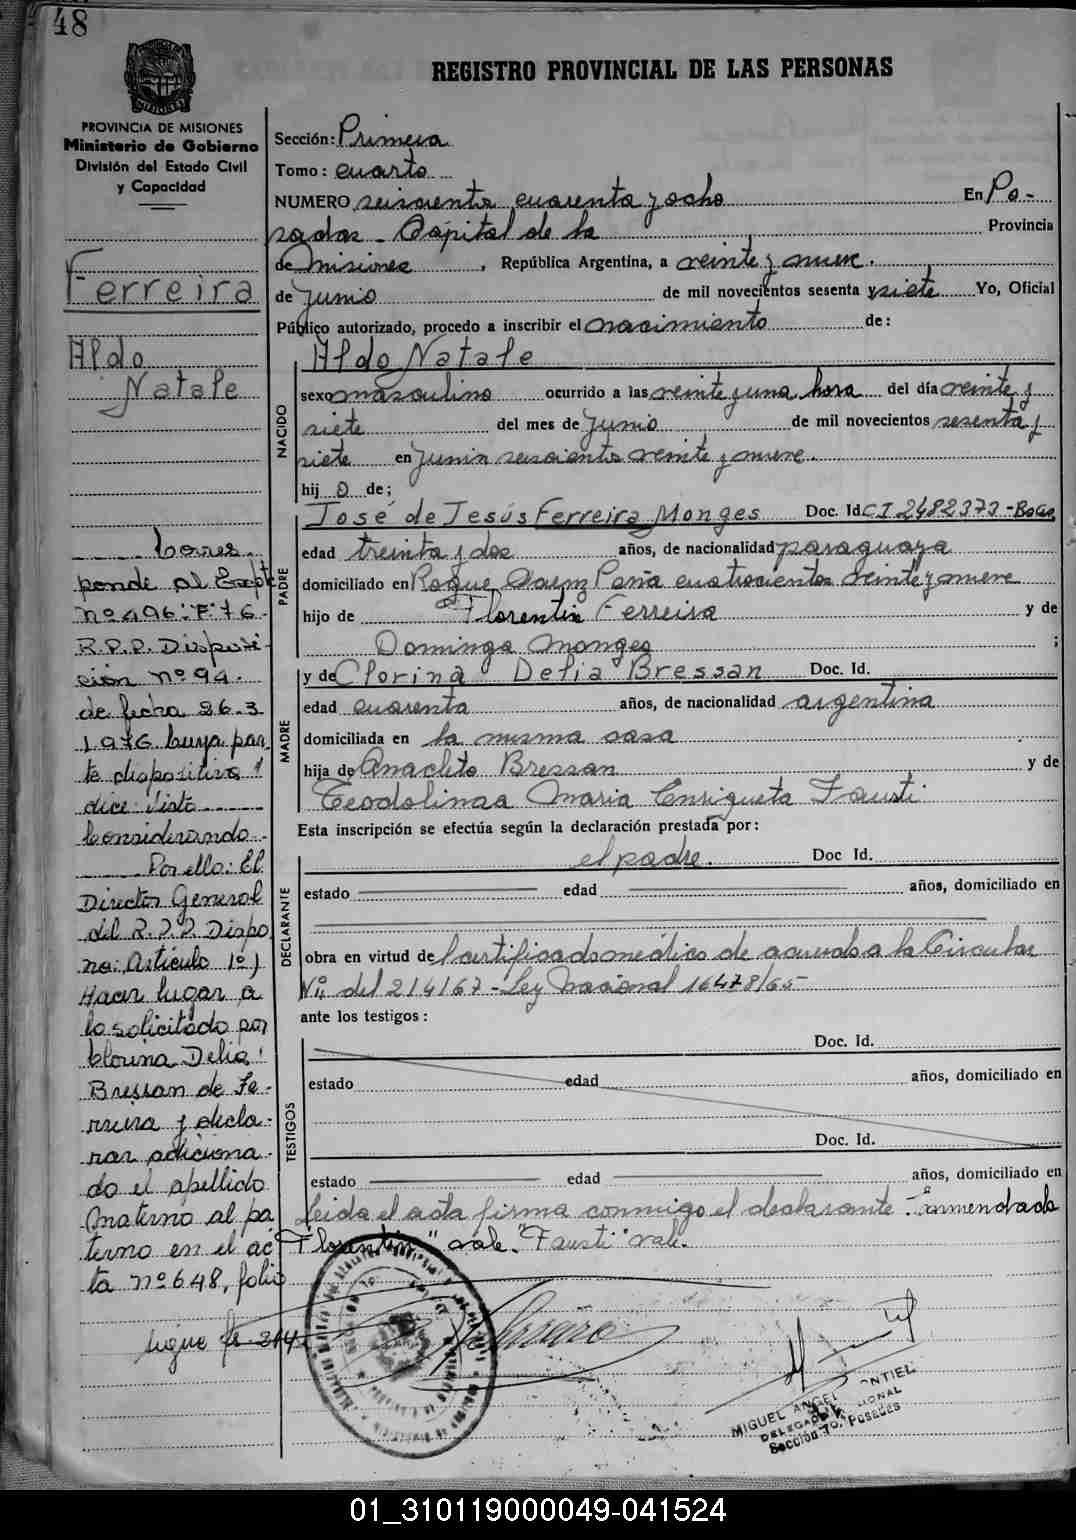 48
REGISTRO PROVINCIAL DE LAS PERSONAS
PROVINCIA DE MISIONES
Ministerio de Gobierno
División del Estado Civil
y Capacidad
Ferreira
Aldo
Natale
Corres-
ponde al Expte
Nº 496-F-76-
R.P.P. Disposi-
ción nº 94-
de fecha 26-3
1976 cuya par-
te dispositiva
dice: Visto
Considerando-
Por ello: El
Director General
del R.P.P. Dispo
ne: Artículo 1º)
Hacer lugar a
lo solicitado por
Clorina Delia
Bressan de Fe-
rreira y decla-
rar adiciona-
do el apellido
materno al pa
terno en el ac
ta nº 648, folio
sigue fº 214
Sección: Primera
Tomo: cuarto
NUMERO seiscientos cuarenta y ocho En Po-
sadas - Capital de la Provincia
de Misiones, República Argentina, a veinte y nueve
de Junio de mil novecientos sesenta y siete Yo, Oficial
Público autorizado, procedo a inscribir el nacimiento de:
Aldo Natale
NACIDO
sexo masculino ocurrido a las veinte y una hora del día veinte y
siete del mes de Junio de mil novecientos sesenta y
siete en Junin seiscientos veinte y nueve
hijo de;
PADRE
José de Jesús Ferreira Monges Doc. Id. CI 2482373-
edad treinta y dos años, de nacionalidad paraguaya
domiciliado en Roque Saenz Peña cuatrocientos veinte y nueve
hijo de Florentin Ferreira y de
Dominga Monges ;
MADRE
y de Clorina Delia Bressan Doc. Id.
edad cuarenta años, de nacionalidad argentina
domiciliada en la misma casa
hija de Anacleto Bressan y de
Teodolinda Maria Enriqueta Fausti
Esta inscripción se efectúa según la declaración prestada por:
DECLARANTE
el padre. Doc Id.
estado edad años, domiciliado en
obra en virtud de certificado médico de acuerdo a la Circular
Nº 4 del 21/4/67 - Ley Nacional 16478/65-
ante los testigos:
TESTIGOS
Doc. Id.
estado edad años, domiciliado en
Doc. Id.
estado edad años, domiciliado en
Leida el acta firma conmigo el declarante. Enmendado
"Florentin" vale. "Fausti" vale.
MIGUEL ANGEL
Sección 1º, Posadas
01_310119000049-041524